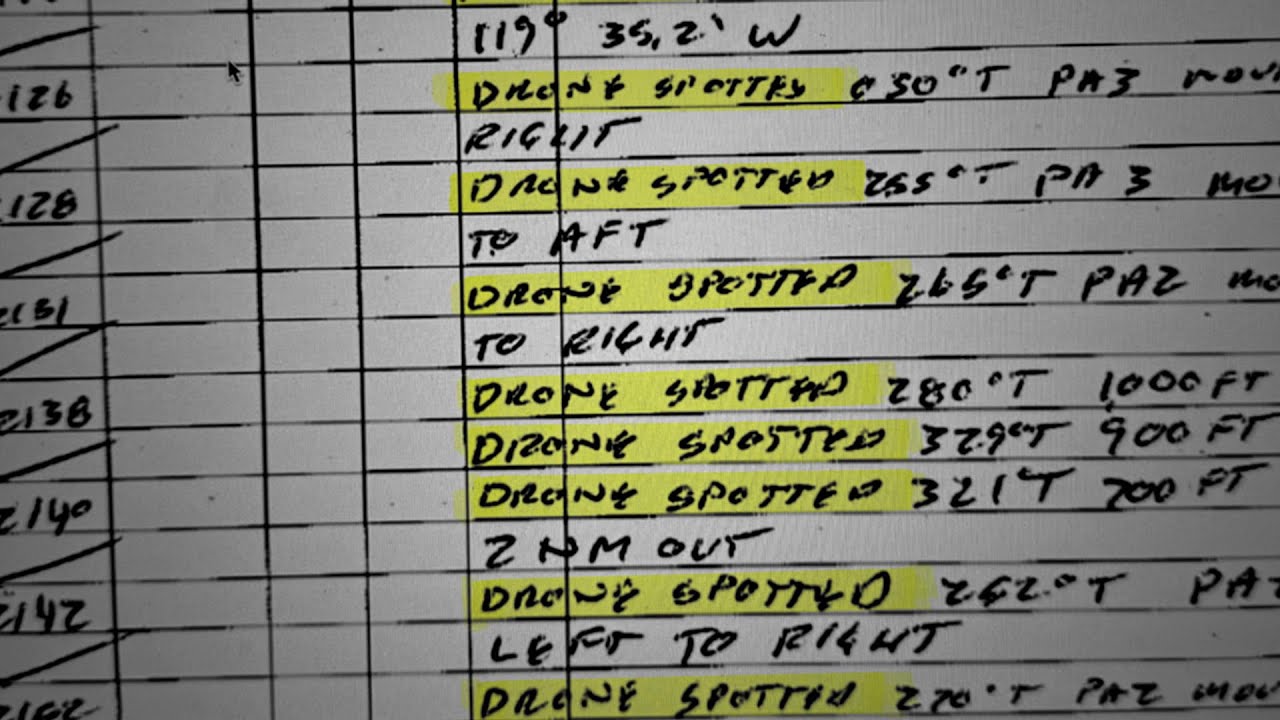 119° 35.2' W
2126 DRONE SPOTTED 030°T PA3 MOV
RIGHT
2128 DRONE SPOTTED 255°T PA 3 MO
TO AFT
2131 DRONE SPOTTED 265°T PA2 MO
TO RIGHT
2138 DRONE SPOTTED 280°T 1000 FT
DRONE SPOTTED 329°T 900 FT
2140 DRONE SPOTTED 321°T 700 FT
2 NM OUT
2142 DRONE SPOTTED 262°T PA2
LEFT TO RIGHT
DRONE SPOTTED 270°T PA2 MOV